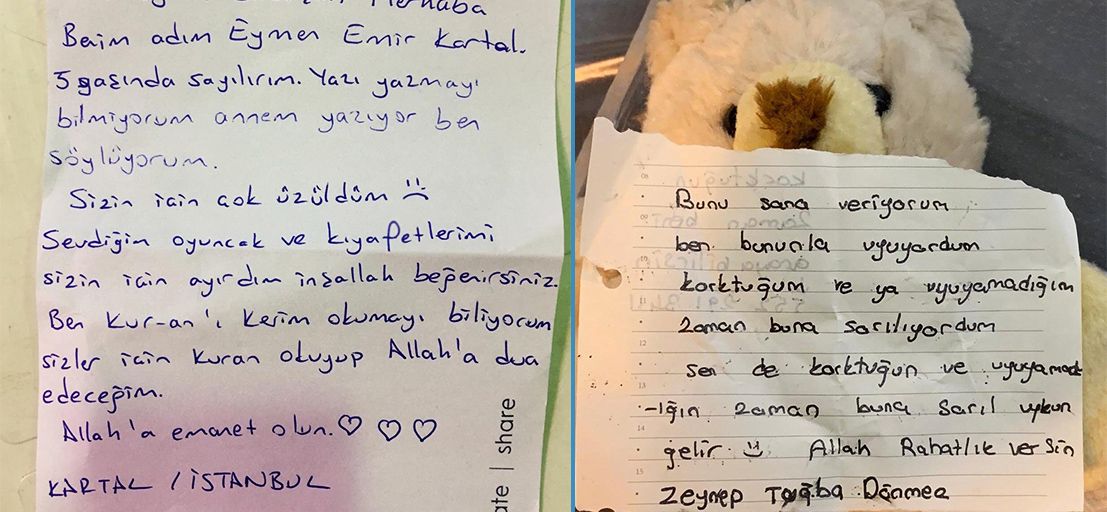 Merhaba
Benim adım Eymen Emir Kartal.
5 yaşında sayılırım. Yazı yazmayı
bilmiyorum annem yazıyor ben
söylüyorum.
Sizin için çok üzüldüm
Sevdiğim oyuncak ve kıyafetlerimi
sizin için ayırdım inşallah beğenirsiniz.
Ben Kur-an'ı Kerim okumayı biliyorum
sizler için Kuran okuyup Allah'a dua
edeceğim.
Allah'a emanet olun. ♡ ♡ ♡
KARTAL / İSTANBUL
ate | share
Bunu sana veriyorum
ben bununla uyuyordum
korktuğum ve ya uyuyamadığım
zaman buna sarılıyordum
sen de korktuğun ve uyuyamad
-ığın zaman buna sarıl uykun
gelir Allah Rahatlık versin
Zeynep Tuğba Dönmez